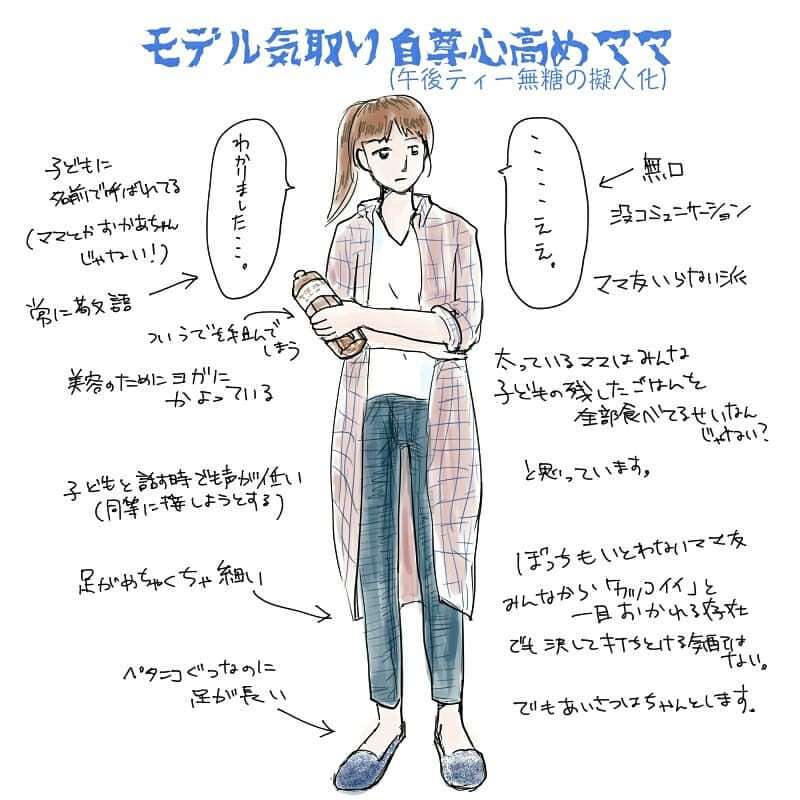 モデル気取り自尊心高めママ
(午後ティー無糖の擬人化)
わかりました…。
…………ええ。
子どもに
名前で呼ばれてる
(ママとかおかあちゃん
じゃない!)
常に敬語
ついうでを組んで
しまう
美容のためにヨガに
かよっている
子どもと話す時でも声が低い
(同等に接しようとする)
足がめちゃくちゃ細い
ペタンコぐつなのに
足が長い
無口
没コミュニケーション
ママ友いらない派
太っているママはみんな
子どもの残したごはんを
全部食べてるせいなん
じゃない?
と思っています。
ぼっちもいとわないママ友
みんなから「カッコイイ」と
一目おかれる存在
でも決して打ちとける気配は
ない。
でもあいさつはちゃんとします。